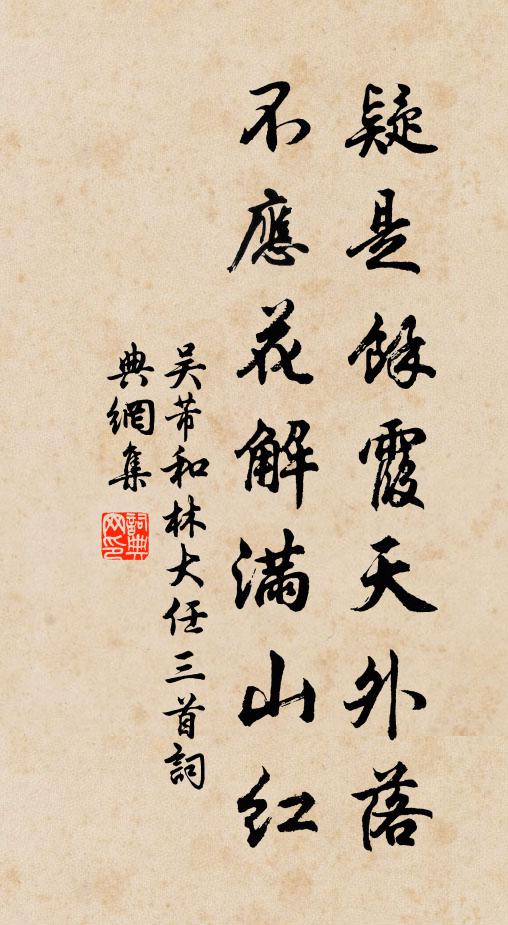 疑是餘霞天外落
不應花解滿山紅
吴芾和林大任三首詞
典網集
詞典網印